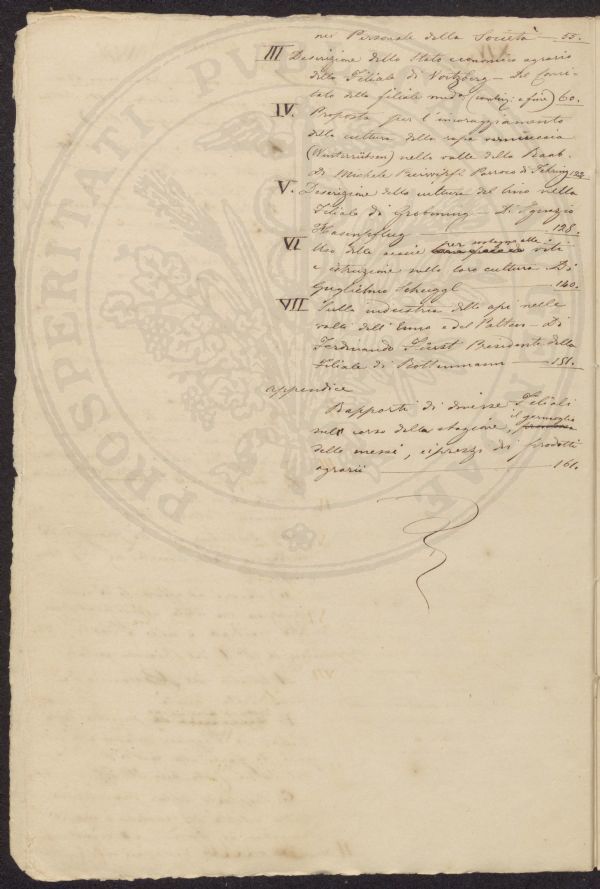 nei Personale della Società — 55.
III Descrizione dello Stato economico agrario
della Filiale di Voitzberg — del Comi-
tato della filiale med.a (contin: e fine) 60.
IV. Proposta per l'incoraggiamento
della cultura della rapa vernereccia
(Winterrübsen) nella valle della Raab.
di Michele Parroco di Fehring 122
V. Descrizione della cultura del lino nella
Filiale di Grobming — D. Ignazio
Hasenpflug — 128.
VI Uso delle acacie per sostegno alle viti
e istruzione sulla loro cultura Di
Guglielmo Scheiggl — 140.
VII Sulla industria delle api nelle
valli dell'Enno e del Palten — Di
Ferdinando Fürst Presidente della
Filiale di Rottenmann — 151.
Appendice
Rapporti di diverse Filiali
sul corso della stagione, il germoglio
delle messi, e i prezzi dei prodotti
agrarii — 161.
PROSPERITATI PUBLICAE